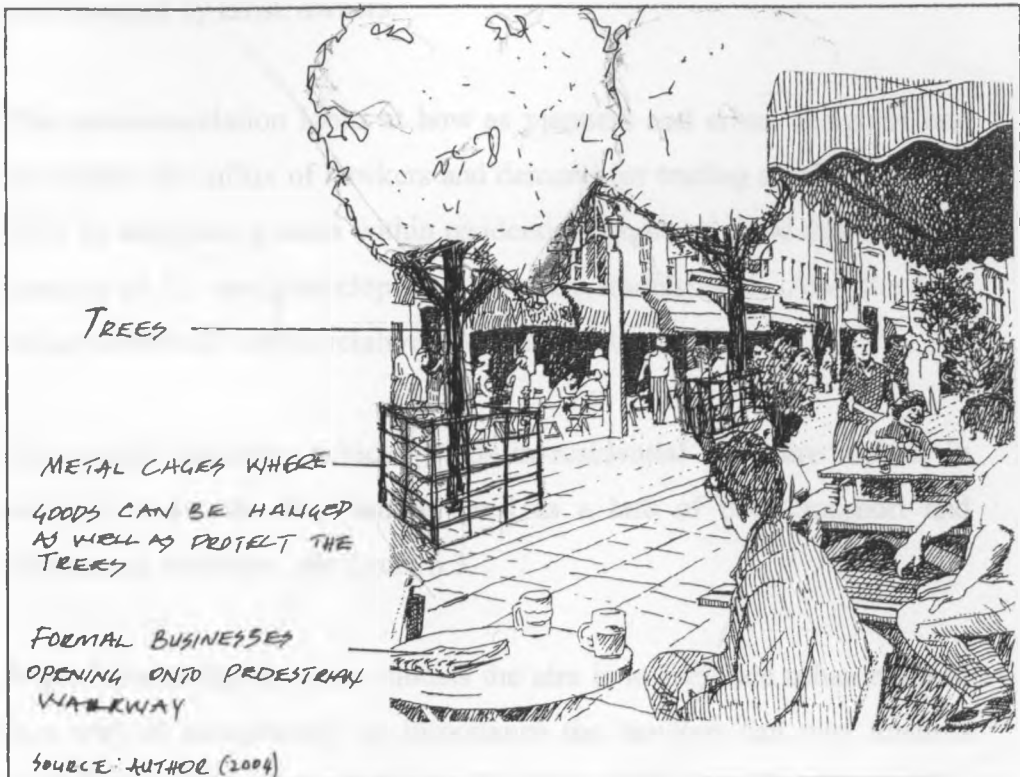 TREES
METAL CAGES WHERE
GOODS CAN BE HANGED
AS WELL AS PROTECT THE
TREES
FORMAL BUSINESSES
OPENING ONTO PEDESTRIAN
WALKWAY
SOURCE: AUTHOR (2004)